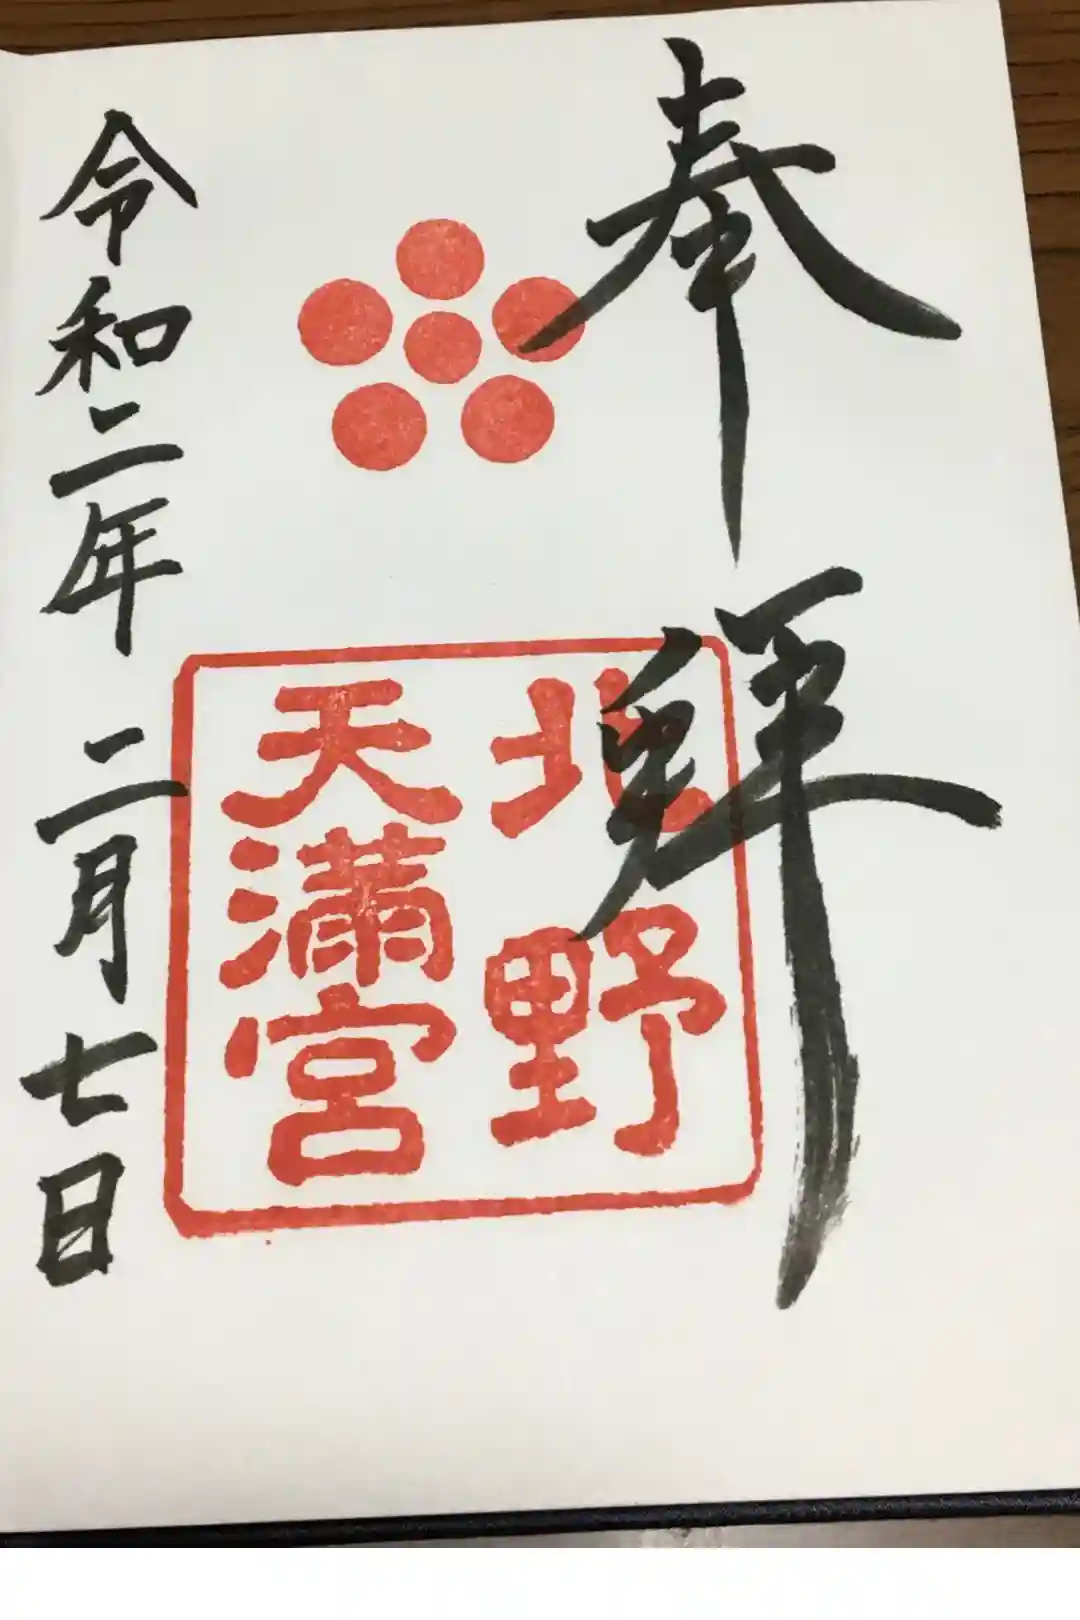 奉拜
北野
天滿宮
令和二年二月七日